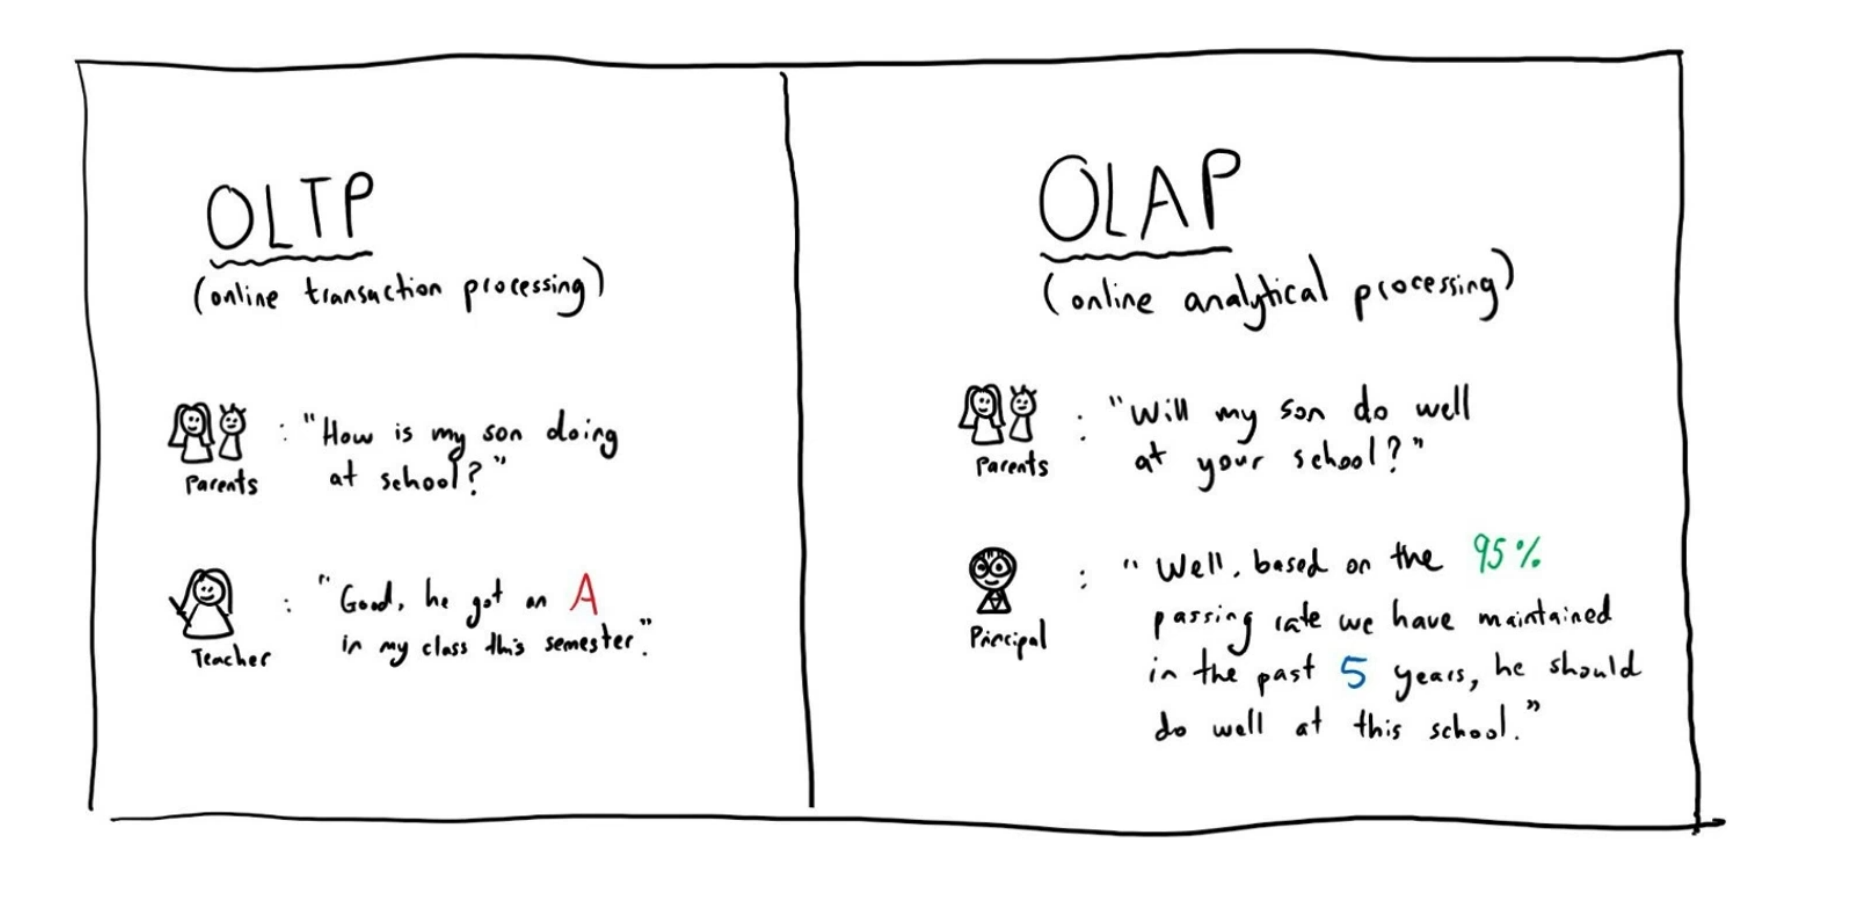 OLTP
(online transaction processing)
Parents : "How is my son doing
at school?"
Teacher : "Good, he got an A
in my class this semester."
OLAP
(online analytical processing)
Parents : "Will my son do well
at your school?"
Principal : "Well, based on the 95%
passing rate we have maintained
in the past 5 years, he should
do well at this school."